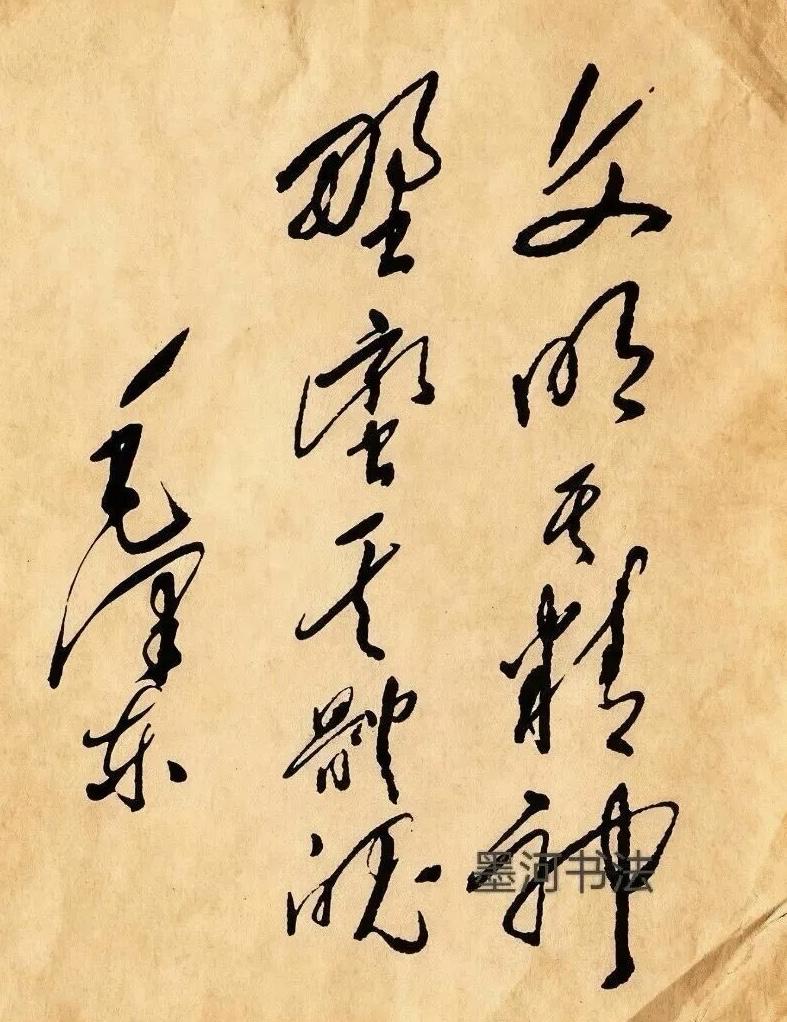 文明其精神
野蛮其體魄
毛泽东
墨河书法